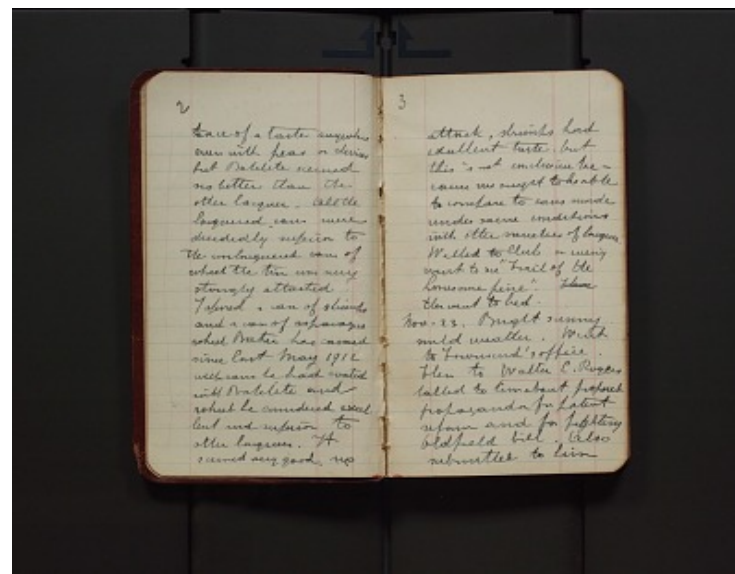 2
trace of a taste anywhere
even with peas or cherries
but Bakelite seemed
no better than the
other lacquer. All the
lacquered cans were
decidedly superior to
the unlacquered cans of
which the tin was very
strongly attacked
I opened a can of shrimps
and a can of asparagus
which Baker has canned
since last May 1912
with cans he had coated
with Bakelite and
which he considered excel
lent and superior to
other lacquers. It
seemed very good, no
3
attack, shrimps had
excellent taste but
this is not conclusive be-
cause we ought to be able
to compare to cans made
under same conditions
with other varieties of lacquer
Walked to Club in evening
went to see "Trail of the
Lonesome Pine".
then went to bed.
Nov. 23. Bright sunny
mild weather. Went
to Townsend's office
then to Walter E. Rogers
talked to him about proposed
propaganda for patent
reform and for fighting
Oldfield bill. Also
submitted to him